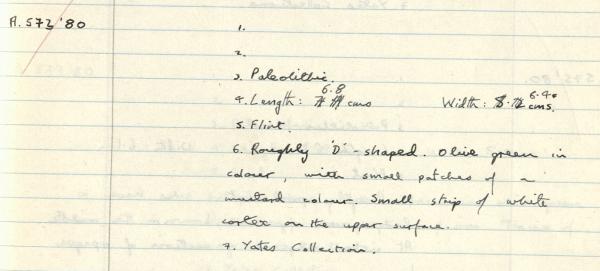 A.573'80
1.
2.
3. Paleolithic.
4. Length: 6.8 cms Width: 6.40 cms.
5. Flint.
6. Roughly 'D'-shaped. Olive green in
colour, with small patches of a
mustard colour. Small strip of white
cortex on the upper surface.
7. Yates Collection.